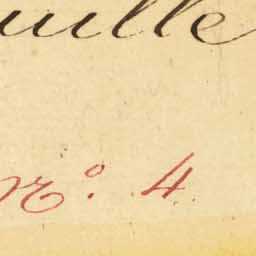 uille
nº. 4